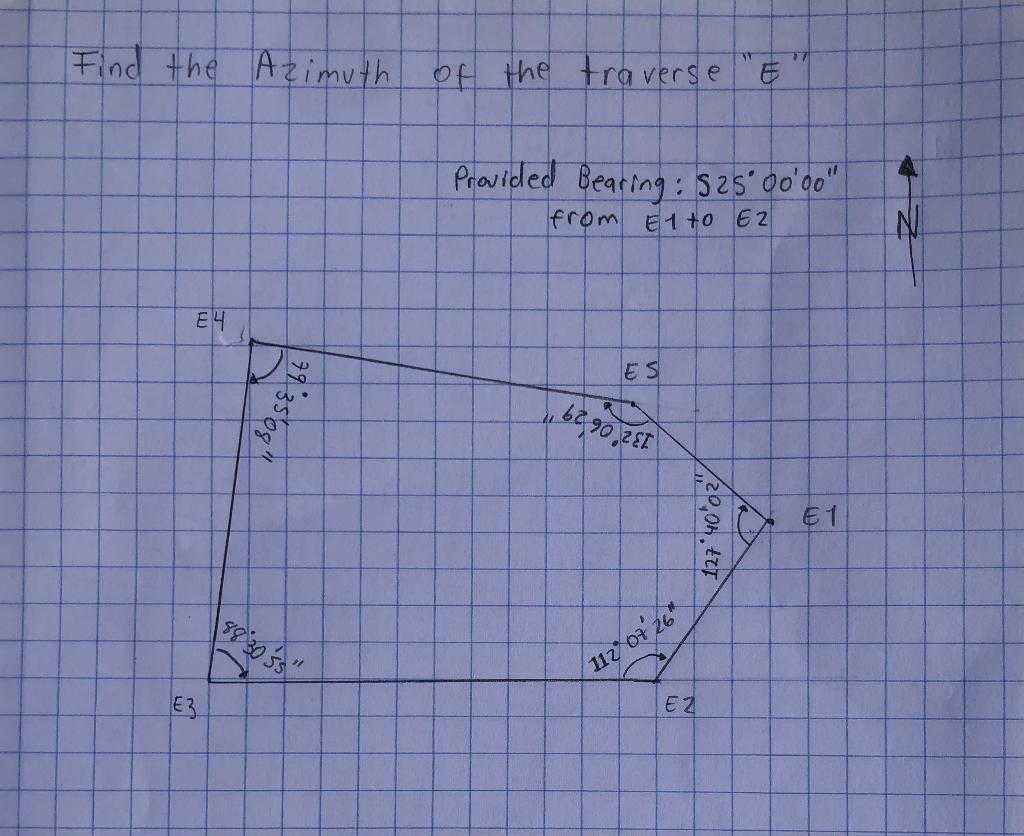 Find the Azimuth of the traverse "E"
Provided Bearing: S25° 00'00"
from E1 to E2
N
E4
E5
79° 35' 08"
132° 06' 29"
E1
127° 40' 02"
88° 30' 55"
112° 07' 26"
E3
E2